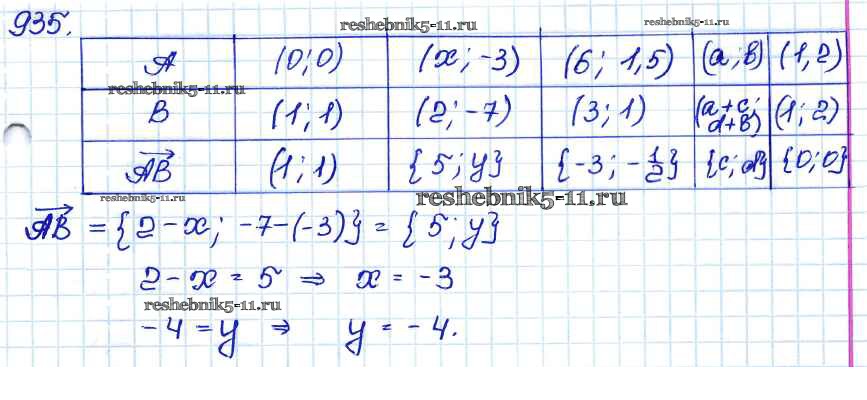 935.
reshebnik5-11.ru
reshebnik5-11.ru
A (0; 0) (x; -3) (6; 1,5) (a; b) (1, 2)
reshebnik5-11.ru
B (1; 1) (2; -7) (3; 1) (a+c; d+b) (1; 2)
AB (1; 1) {5; y} {-3; -1/2} {c; d} {0; 0}
reshebnik5-11.ru
reshebnik5-11.ru
AB = {2-x; -7-(-3)} = {5; y}
2-x = 5 ⇒ x = -3
reshebnik5-11.ru
-4 = y ⇒ y = -4.